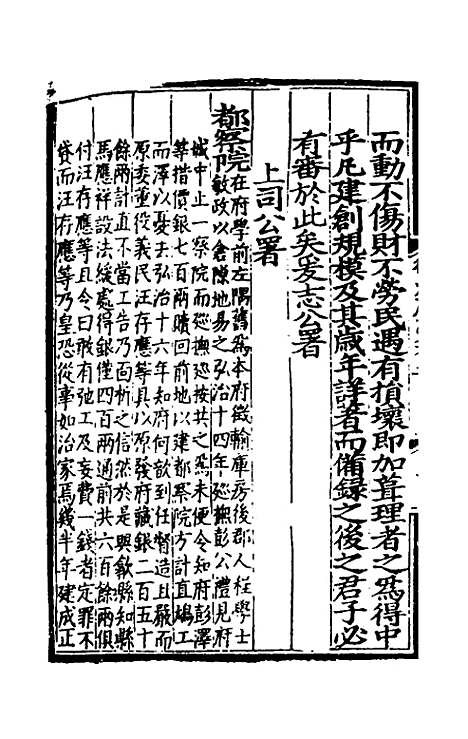 而動不傷財不勞民遇有損壞即加葺理者之爲得中
乎凡建創規模及其歲年詳者而備録之後之君子必
有審於此矣爰志公署
上司公署
都察院在府學前左隅舊爲本府徵輸庫房後郡人程學士
敏政以倉隙地易之弘治十四年廵撫彭公禮見府
城中止一察院而廵撫廵按共之焉未便令知府彭澤
等措價銀七百兩贖回前地以建都察院方計直鳩工
而澤以憂去弘治十六年知府何歆到任督造且嚴而
原委董役義民汪存應等具以原發府藏銀二百五十
餘兩計直不當工告乃面析之信然於是與歙縣知縣
馬應祥設法緩處得銀僅四百兩通前共六百餘兩俱
付汪存應等且令曰敢有弛工及妄費一錢者定罪不
貸而汪存應等乃皇恐從事如治家焉幾半年建成正